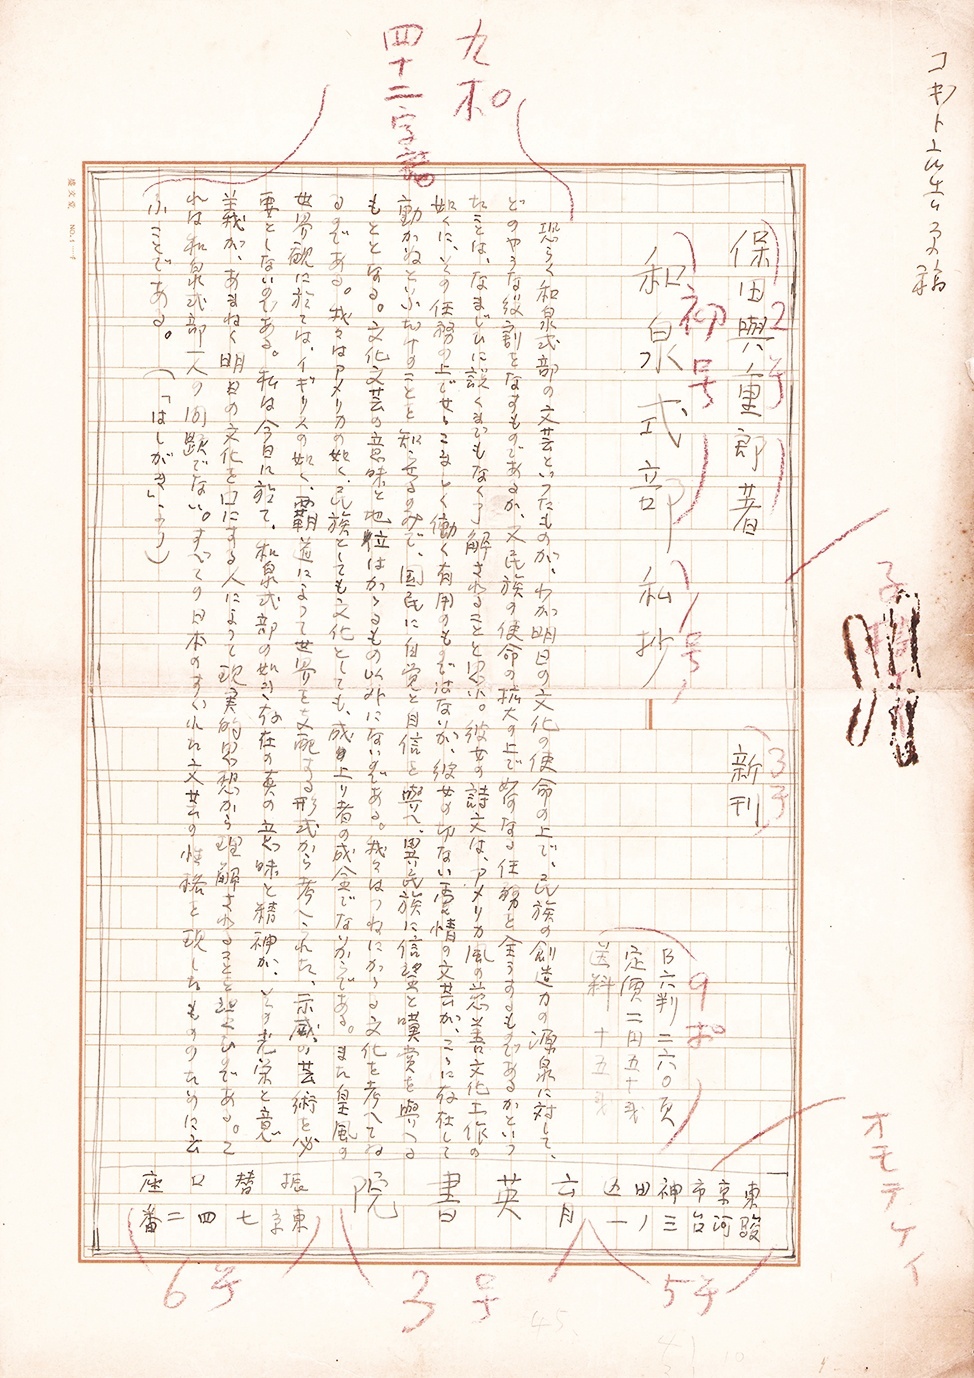 コギト
保田與重郎著
2号
新刊
3号
和泉式部私抄
初号
1号
B六判 二六〇頁
定價 二円五十銭
送料 十五銭
9ポ
九ポ
四十二字詰
恐らく和泉式部の文芸といつたものが、わが明日の文化の使命の上で、民族の創造力の源泉に対して、
どのやうな役割をなすものであるか、又民族の使命の拡大の上で如何なる任務を全うするものであるかといふ
ことは、なまじひに説くまでもなく了解されることと思ふ。彼女の詩文は、アメリカ風の慈善文化工作の
如くに、その任務の上でせゝこましく働く有用のものではないが、彼女の切ない真情の文芸が、こゝに存在して
動かぬといふだけのことを知らせるのみで、国民に自覚と自信を與へ、異民族に信望と嘆賞を與へる
もととなる。文化文芸の意味と地位はかゝるもの以外にないのである。我々はつねにかゝる文化を考へてゐ
るのである。我々はアメリカの如く、民族としても文化としても、成上り者の成金でないからである。また皇風の
世界観に於ては、イギリスの如く、覇道によつて世界を支配する形式から考へられた、示威の芸術を必
要としないのである。私は今日に於て、和泉式部の如き存在の真の意味と精神が、その光栄と意
義が、あまねく明日の文化を口にする人によつて現実的思想から理解されることを望むのである。こ
れは和泉式部一人の問題でない。すべての日本のすぐれた文芸の性格を現したもののために云
ふことである。 (「はしがき」より)
東京市神田
駿河台三ノ一
六月
英書院
振替口座
東京七四二番
5号
3号
6号
オモテケイ
45